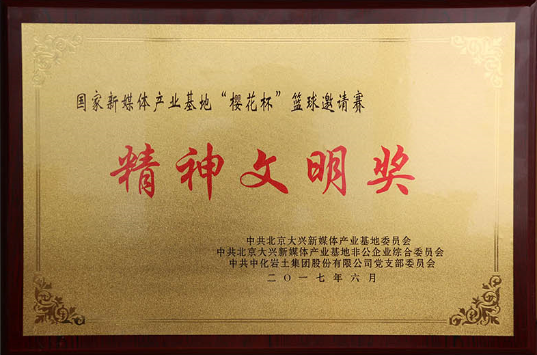 国家新媒体产业基地“樱花杯”篮球邀请赛
精神文明奖
中共北京大兴新媒体产业基地委员会
中共北京大兴新媒体产业基地非公企业综合委员会
中共中化岩土集团股份有限公司党支部委员会
二〇一七年六月